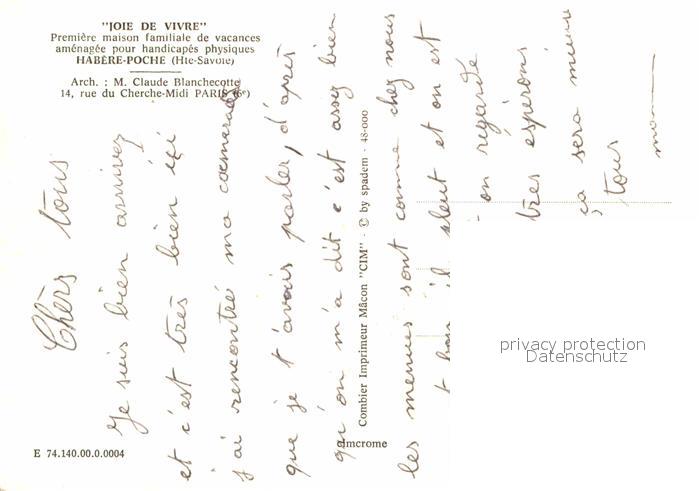 "JOIE DE VIVRE"
Première maison familiale de vacances
aménagée pour handicapés physiques
HABÈRE-POCHE (Hte-Savoie)
Arch. : M. Claude Blanchecotte
14, rue du Cherche-Midi PARIS (6e)
Chèrs tous
Je suis bien arrivez
et c'est très bien içi
j'ai rencontré ma camarade
que je t'avais parler, d'après
qu'on m'a dit c'est assez bien
les menus sont comme chez nous
il pleut et on est
on regarde
très espérons
ça sera mieux
tous
Combier Imprimeur Mâcon "CIM" - © by spadem - 48-000
cimcrome
E 74.140.00.0.0004
privacy protection
Datenschutz